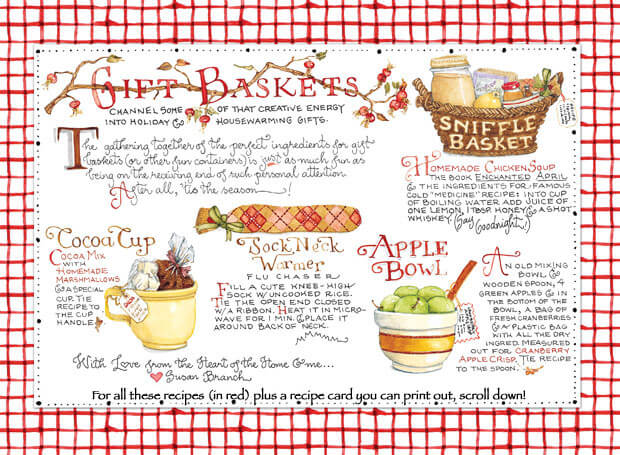 GIFT BASKETS
CHANNEL SOME OF THAT CREATIVE ENERGY
INTO HOLIDAY & HOUSEWARMING GIFTS.
The gathering together of the perfect ingredients for gift
baskets (or other fun containers) is just as much fun as
being on the receiving end of such personal attention.
After all, 'tis the season—!
SNIFFLE
BASKET
HOMEMADE CHICKEN SOUP
THE BOOK ENCHANTED APRIL
& THE INGREDIENTS FOR FAMOUS
COLD "MEDICINE" RECIPE: INTO CUP
OF BOILING WATER ADD JUICE OF
ONE LEMON, 1 TBSP. HONEY & A SHOT
WHISKEY. (Say Goodnight!)
COCOA CUP
COCOA MIX
WITH
HOMEMADE
MARSHMALLOWS
& A SPECIAL
CUP. TIE
RECIPE TO
THE CUP
HANDLE
Sock Neck
Warmer
FLU CHASER
FILL A CUTE KNEE-HIGH
SOCK W/UNCOOKED RICE.
TIE THE OPEN END CLOSED
W/A RIBBON. HEAT IT IN MICRO-
WAVE FOR 1 MIN. & PLACE IT
AROUND BACK OF NECK.
mMmmm
APPLE
BOWL
AN OLD MIXING
BOWL &
WOODEN SPOON, 4
GREEN APPLES & IN
THE BOTTOM OF THE
BOWL, A BAG OF
FRESH CRANBERRIES
& A PLASTIC BAG
WITH ALL THE DRY
INGRED. MEASURED
OUT FOR CRANBERRY
APPLE CRISP. TIE RECIPE
TO THE SPOON.
With Love from the Heart of the Home & me...
Susan Branch
For all these recipes (in red) plus a recipe card you can print out, scroll down!